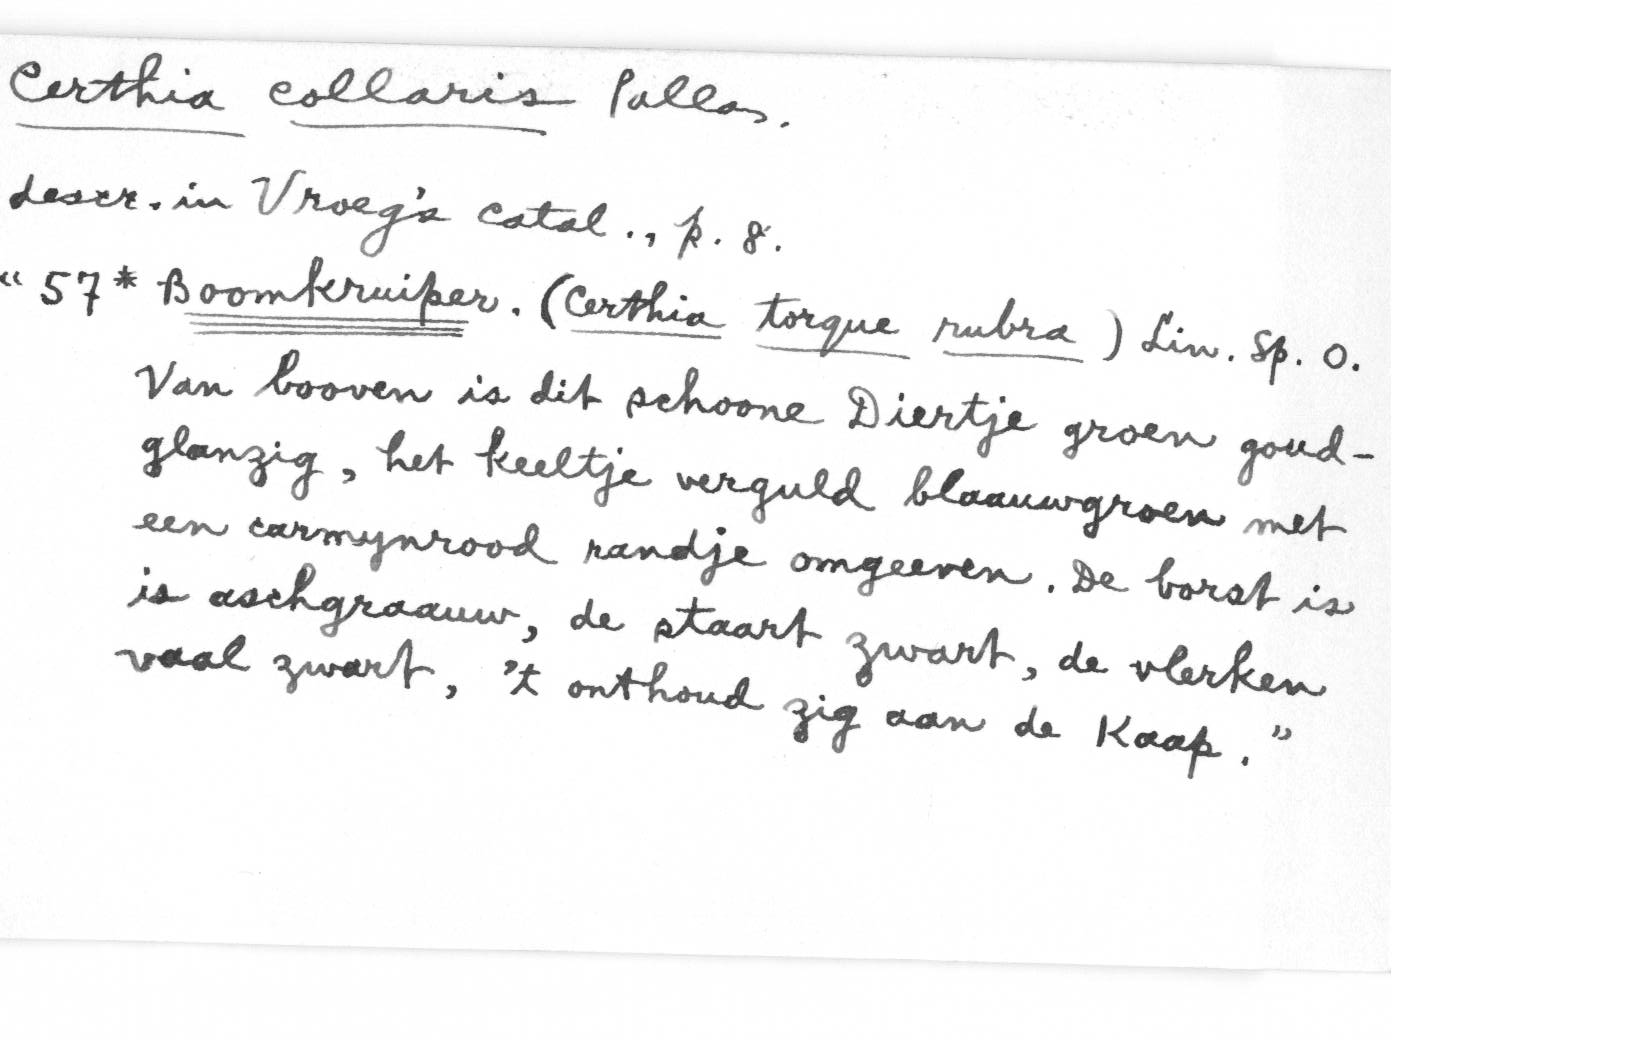 Certhia collaris Pallas.
descr. in Vroeg's catal., p. 8.
"57* Boomkruiper. (Certhia torque rubra) Lin. Sp. O.
Van booven is dit schoone Diertje groen goud-
glanzig, het keeltje verguld blaauwgroen met
een carmynrood randje omgeeven. De borst is
is aschgraauw, de staart zwart, de vlerken
vaal zwart, 't onthoud zig aan de Kaap."